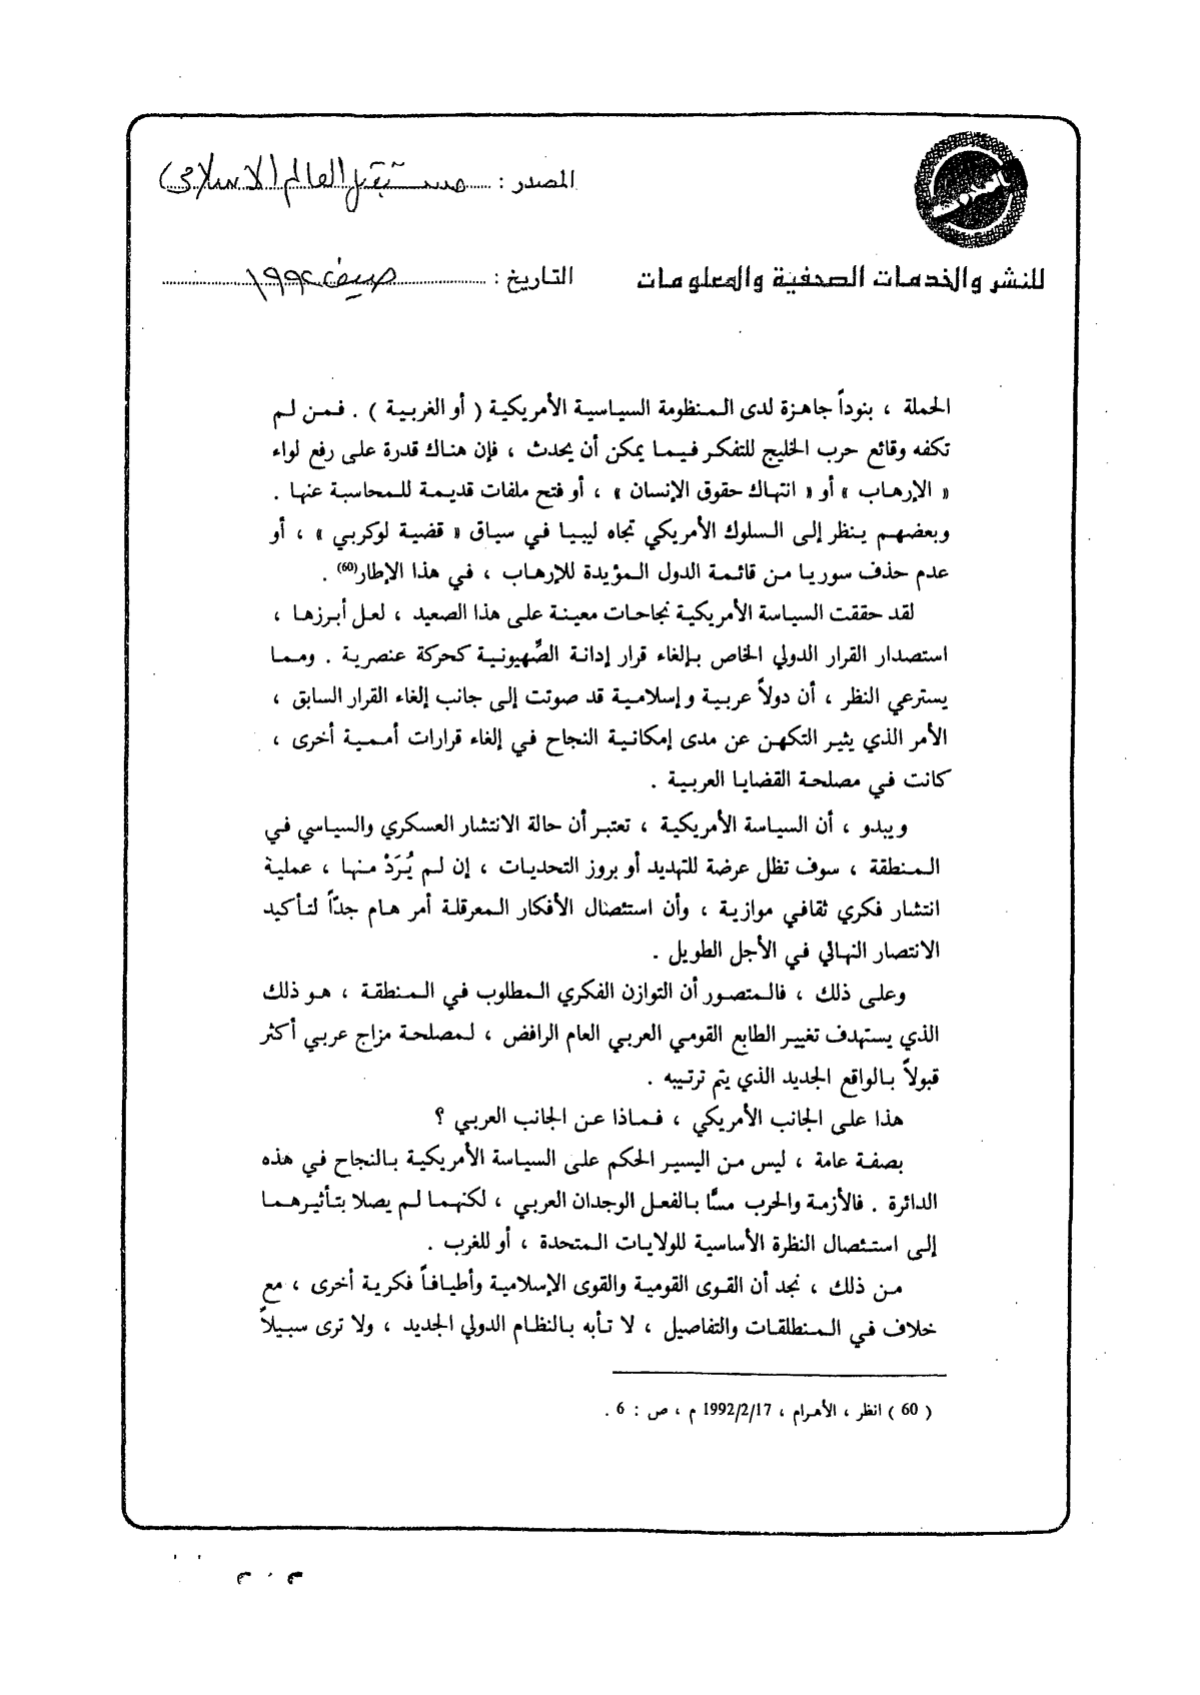 المصدر : مستقبل العالم الاسلامي
للنشر والخدمات الصحفية والمعلومات
التاريخ : صيف ١٩٩٢
الحملة ، بنوداً جاهزة لدى المنظومة السياسية الأمريكية ( أو الغربية ) . فمن لم
تكفه وقائع حرب الخليج للتفكر فيما يمكن أن يحدث ، فإن هناك قدرة على رفع لواء
« الإرهاب » أو « انتهاك حقوق الإنسان » ، أو فتح ملفات قديمة للمحاسبة عنها .
وبعضهم ينظر إلى السلوك الأمريكي تجاه ليبيا في سياق « قضية لوكربي » ، أو
عدم حذف سوريا من قائمة الدول المؤيدة للإرهاب ، في هذا الإطار(60) .
لقد حققت السياسة الأمريكية نجاحات معينة على هذا الصعيد ، لعل أبرزها ،
استصدار القرار الدولي الخاص بإلغاء قرار إدانة الصِّهيونية كحركة عنصرية . ومما
يسترعي النظر ، أن دولاً عربية وإسلامية قد صوتت إلى جانب إلغاء القرار السابق ،
الأمر الذي يثير التكهن عن مدى إمكانية النجاح في إلغاء قرارات أممية أخرى ،
كانت في مصلحة القضايا العربية .
ويبدو ، أن السياسة الأمريكية ، تعتبر أن حالة الانتشار العسكري والسياسي في
المنطقة ، سوف تظل عرضة للتهديد أو بروز التحديات ، إن لم يُرَدْ منها ، عملية
انتشار فكري ثقافي موازية ، وأن استئصال الأفكار المعرقلة أمر هام جدّاً لتأكيد
الانتصار النهائي في الأجل الطويل .
وعلى ذلك ، فالمتصور أن التوازن الفكري المطلوب في المنطقة ، هو ذلك
الذي يستهدف تغيير الطابع القومي العربي العام الرافض ، لمصلحة مزاج عربي أكثر
قبولاً بالواقع الجديد الذي يتم ترتيبه .
هذا على الجانب الأمريكي ، فماذا عن الجانب العربي ؟
بصفة عامة ، ليس من اليسير الحكم على السياسة الأمريكية بالنجاح في هذه
الدائرة . فالأزمة والحرب مسًّا بالفعل الوجدان العربي ، لكنهما لم يصلا بتأثيرهما
إلى استئصال النظرة الأساسية للولايات المتحدة ، أو للغرب .
من ذلك ، نجد أن القوى القومية والقوى الإسلامية وأطيافاً فكرية أخرى ، مع
خلاف في المنطلقات والتفاصيل ، لا تأبه بالنظام الدولي الجديد ، ولا ترى سبيلاً
( 60 ) انظر ، الأهرام ، 1992/2/17 م ، ص : 6 .